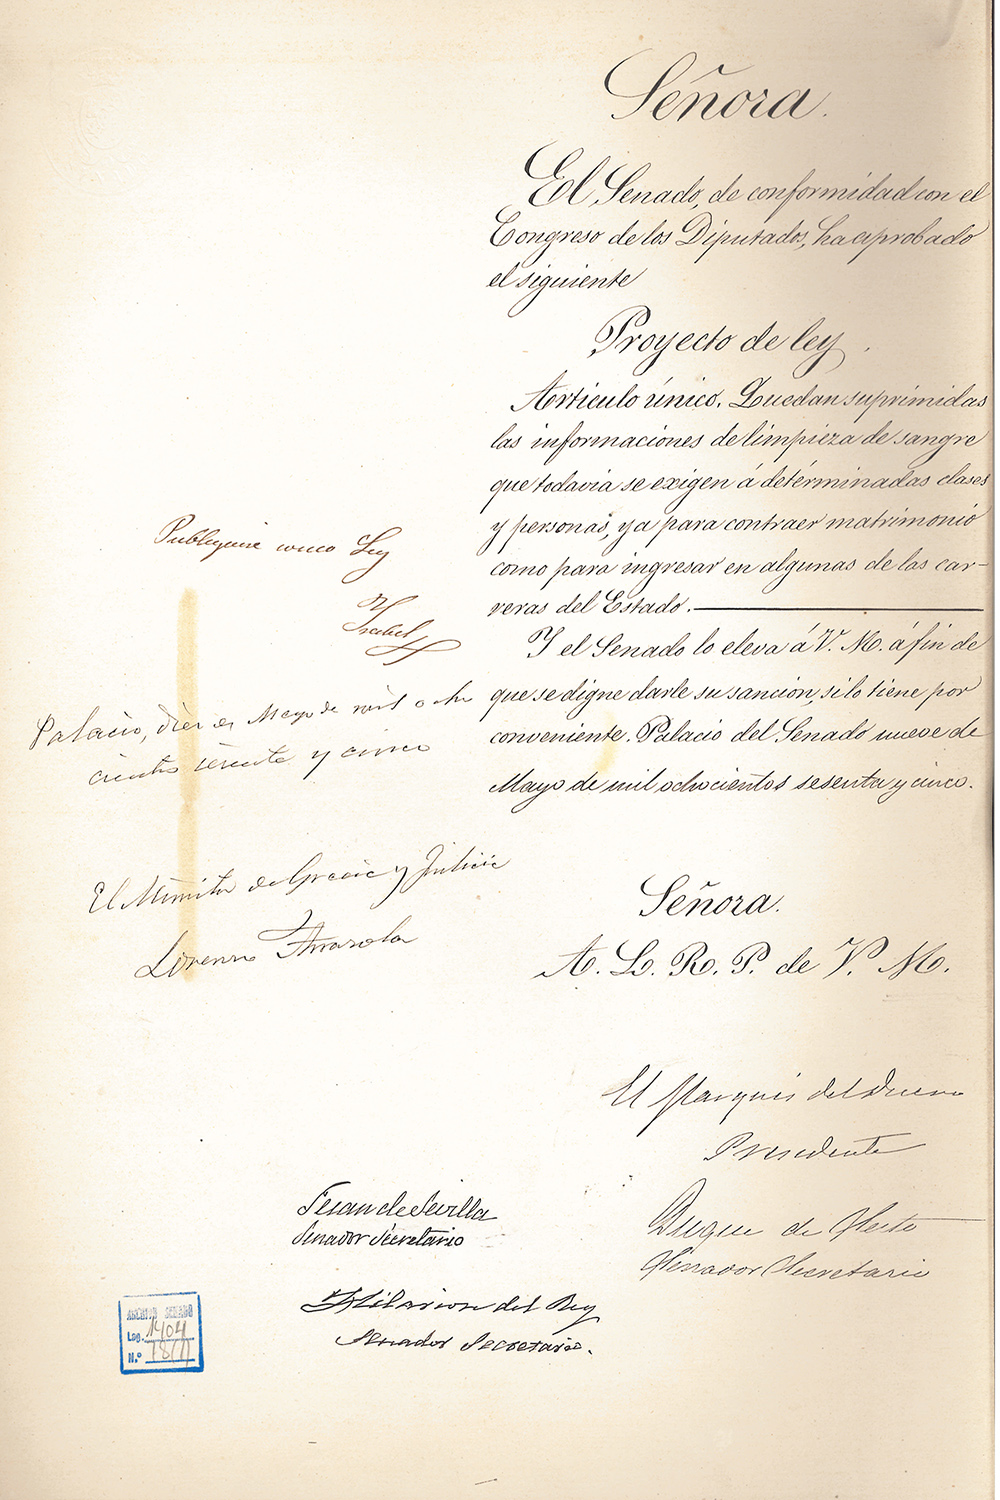 Señora.
El Senado, de conformidad con el
Congreso de los Diputados, ha aprobado
el siguiente
Proyecto de ley.
Artículo único. Quedan suprimidas
las informaciones de limpieza de sangre
que todavia se exigen á determinadas clases
y personas, ya para contraer matrimonio
como para ingresar en algunas de las car-
reras del Estado.
Y el Senado lo eleva á V. M. á fin de
que se digne darle su sancion, si lo tiene por
conveniente. Palacio del Senado nueve de
Mayo de mil ochocientos sesenta y cinco.
Señora.
A. L. R. P. de V. M.
El Marques del Duero
Presidente
Duque de
Senador Secretario
Publiquese como Ley
Isabel
Palacio, diez de Mayo de mil ocho
cientos sesenta y cinco
El Ministro de Gracia y Justicia
Lorenzo Arrazola
de Sevilla
Senador Secretario
Hilarion del Rey
Senador Secretario.
ARCHIVO SENADO
Leg. 1404
N.º